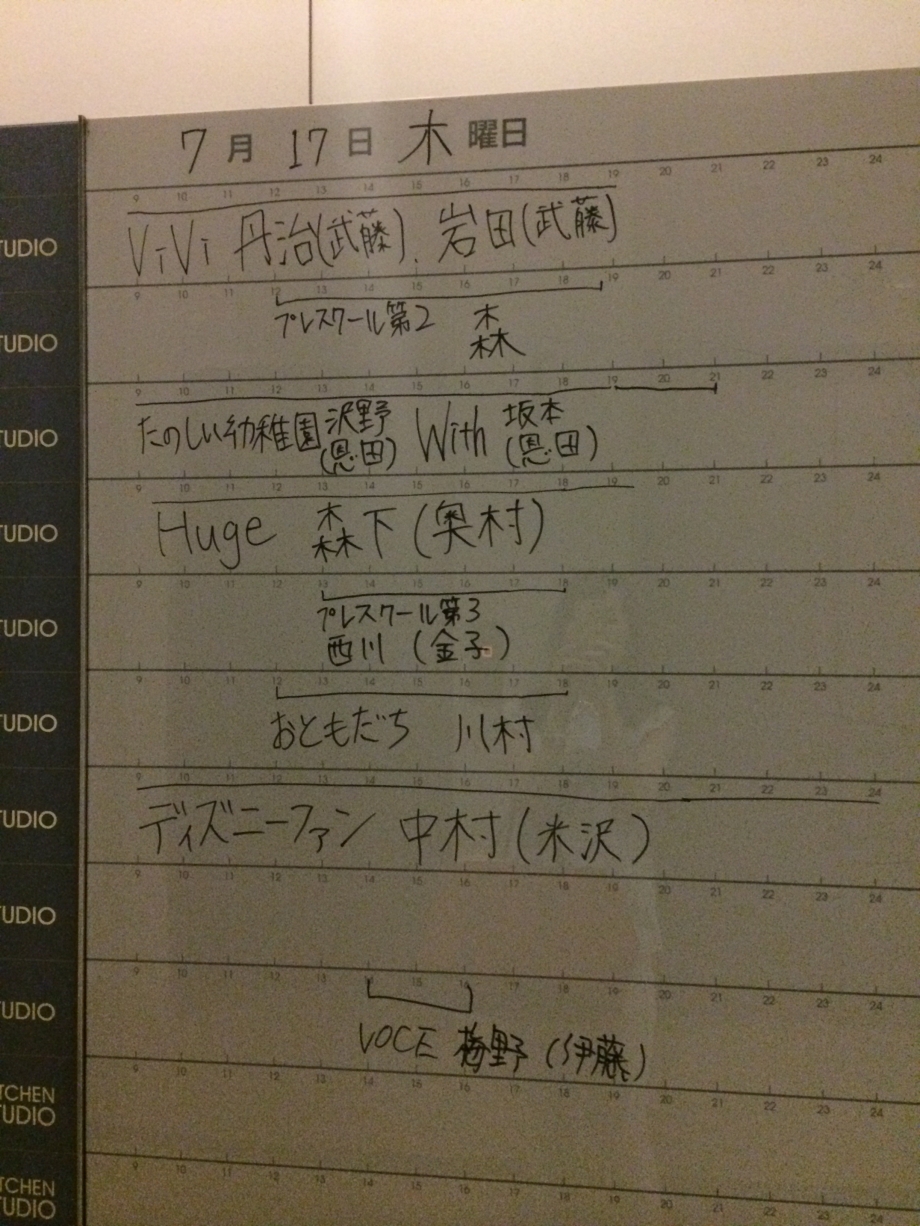 7月 17日 木 曜日
9 10 11 12 13 14 15 16 17 18 19 20 21 22 23 24
TUDIO
ViVi 丹治(武藤). 岩田(武藤)
9 10 11 12 13 14 15 16 17 18 19 20 21 22 23 24
TUDIO
プレスクール第2 森
9 10 11 12 13 14 15 16 17 18 19 20 21 22 23 24
TUDIO
たのしい幼稚園 沢野(恩田) With 坂本(恩田)
9 10 11 12 13 14 15 16 17 18 19 20 21 22 23 24
TUDIO
Huge 森下(奥村)
9 10 11 12 13 14 15 16 17 18 19 20 21 22 23 24
TUDIO
プレスクール第3
西川 (金子)
9 10 11 12 13 14 15 16 17 18 19 20 21 22 23 24
TUDIO
おともだち 川村
9 10 11 12 13 14 15 16 17 18 19 20 21 22 23 24
TUDIO
ディズニーファン 中村(米沢)
9 10 11 12 13 14 15 16 17 18 19 20 21 22 23 24
TUDIO
9 10 11 12 13 14 15 16 17 18 19 20 21 22 23 24
TUDIO
VOCE 梅野 (伊藤)
9 10 11 12 13 14 15 16 17 18 19 20 21 22 23 24
TCHEN
TUDIO
9 10 11 12 13 14 15 16 17 18 19 20 21 22 23 24
TCHEN
TUDIO